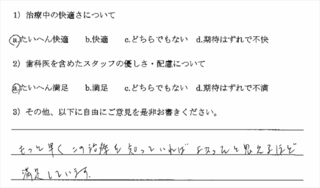 1）治療中の快適さについて
a.たいへん快適　b.快適　c.どちらでもない　d.期待はずれで不快
2）歯科医を含めたスタッフの優しさ・配慮について
a.たいへん満足　b.満足　c.どちらでもない　d.期待はずれで不満
3）その他、以下に自由にご意見を是非お書きください。
もっと早くこの治療を知っていれば よかったと思えるほど
満足しています。